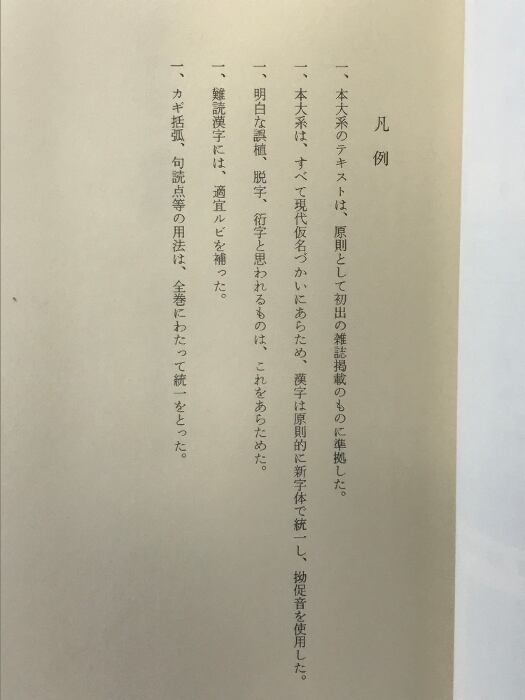 凡例
一、本大系のテキストは、原則として初出の雑誌掲載のものに準拠した。
一、本大系は、すべて現代仮名づかいにあらため、漢字は原則的に新字体で統一し、拗促音を使用した。
一、明白な誤植、脱字、衍字と思われるものは、これをあらためた。
一、難読漢字には、適宜ルビを補った。
一、カギ括弧、句読点等の用法は、全巻にわたって統一をとった。